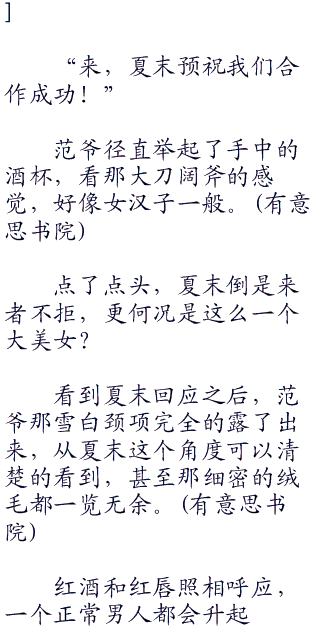 ]
“来，夏末预祝我们合
作成功！”
范爷径直举起了手中的
酒杯，看那大刀阔斧的感
觉，好像女汉子一般。(有意
思书院)
点了点头，夏末倒是来
者不拒，更何况是这么一个
大美女？
看到夏末回应之后，范
爷那雪白颈项完全的露了出
来，从夏末这个角度可以清
楚的看到，甚至那细密的绒
毛都一览无余。(有意思书
院)
红酒和红唇照相呼应，
一个正常男人都会升起